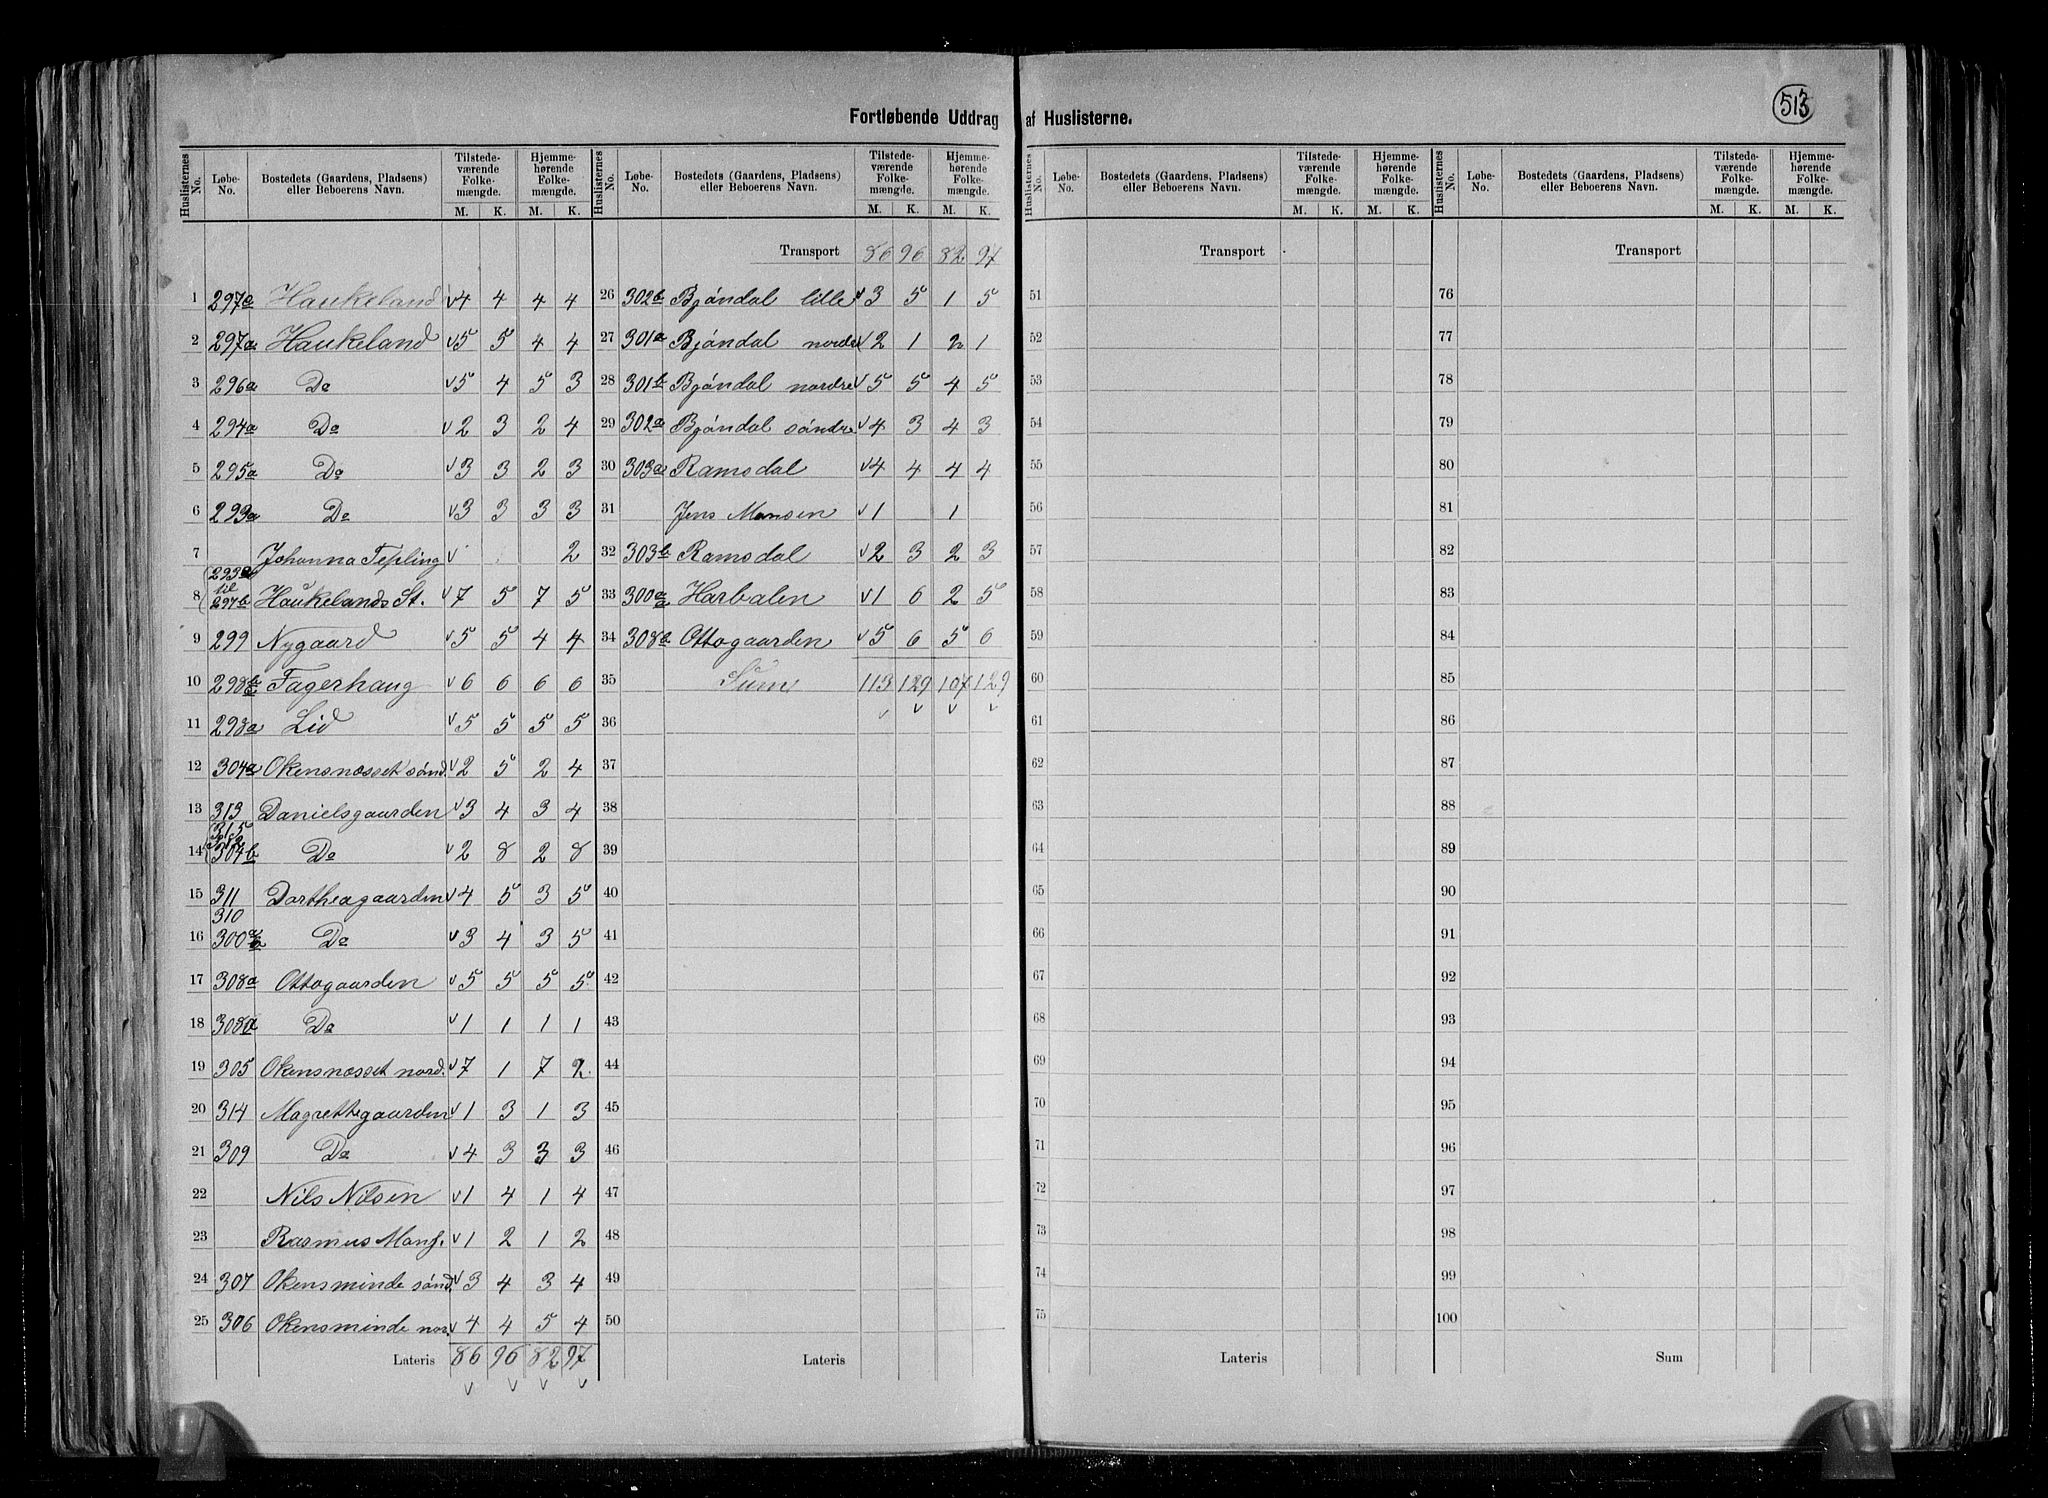 513
Fortløbende Uddrag af Huslisterne.
Huslisternes No. Løbe-No. Bostedets (Gaardens, Pladsens) eller Beboerens Navn. Tilstedeværende Folkemængde. M. K. Hjemmehørende Folkemængde. M. K.
Huslisternes No. Løbe-No. Bostedets (Gaardens, Pladsens) eller Beboerens Navn. Tilstedeværende Folkemængde. M. K. Hjemmehørende Folkemængde. M. K.
Huslisternes No. Løbe-No. Bostedets (Gaardens, Pladsens) eller Beboerens Navn. Tilstedeværende Folkemængde. M. K. Hjemmehørende Folkemængde. M. K.
Huslisternes No. Løbe-No. Bostedets (Gaardens, Pladsens) eller Beboerens Navn. Tilstedeværende Folkemængde. M. K. Hjemmehørende Folkemængde. M. K.
1 297a Haukeland v4 4 4 4
2 297a Haukeland v5 5 4 4
3 296a Do v5 4 5 3
4 294a Do v2 3 2 4
5 295a Do v3 3 2 3
6 293a Do v3 3 3 3
7 Johanna Tepling v 2
293a til
8 297b Haukelands St. v7 5 7 5
9 299 Nygaard v5 5 4 4
10 298 Fagerhaug v6 6 6 6
11 298a Lid v5 5 5 5
12 304a Okensnæsset sönd. v2 5 2 4
13 313 Danielsgaarden v3 4 3 4
315
14 304b Do v2 8 2 8
15 311 Dortheagaarden v4 5 3 5
310
16 300 Do v3 4 3 5
17 308a Ottogaarden v5 5 5 5
18 308a Do v1 1 1 1
19 305 Okensnæsset nord. v7 1 7 2
20 314 Magrettegaarden v1 3 1 3
21 309 Do v4 3 3 3
22 Nils Nilsen v1 4 1 4
23 Rasmus Mong. v1 2 1 2
24 307 Okensminde sönd. v3 4 3 4
25 306 Okensminde nor. v4 4 5 4
Lateris 86 96 82 97
v v v v
Transport 86 96 82 97
26 302b Bjöndal lille v3 5 1 5
27 301a Bjöndal nordre v2 1 2 1
28 301b Bjöndal nordre v5 5 4 5
29 302a Bjöndal söndre v4 3 4 3
30 303a Ramsdal v4 4 4 4
31 Jens Monsen v1 1
32 303b Ramsdal v2 3 2 3
33 300a Harbalen v1 6 2 5
34 308a Ottogaarden v5 6 5 6
35 Sum 113 129 107 129
36 v v v v
37
38
39
40
41
42
43
44
45
46
47
48
49
50
Lateris
Transport
51
52
53
54
55
56
57
58
59
60
61
62
63
64
65
66
67
68
69
70
71
72
73
74
75
Lateris
Transport
76
77
78
79
80
81
82
83
84
85
86
87
88
89
90
91
92
93
94
95
96
97
98
99
100
Sum